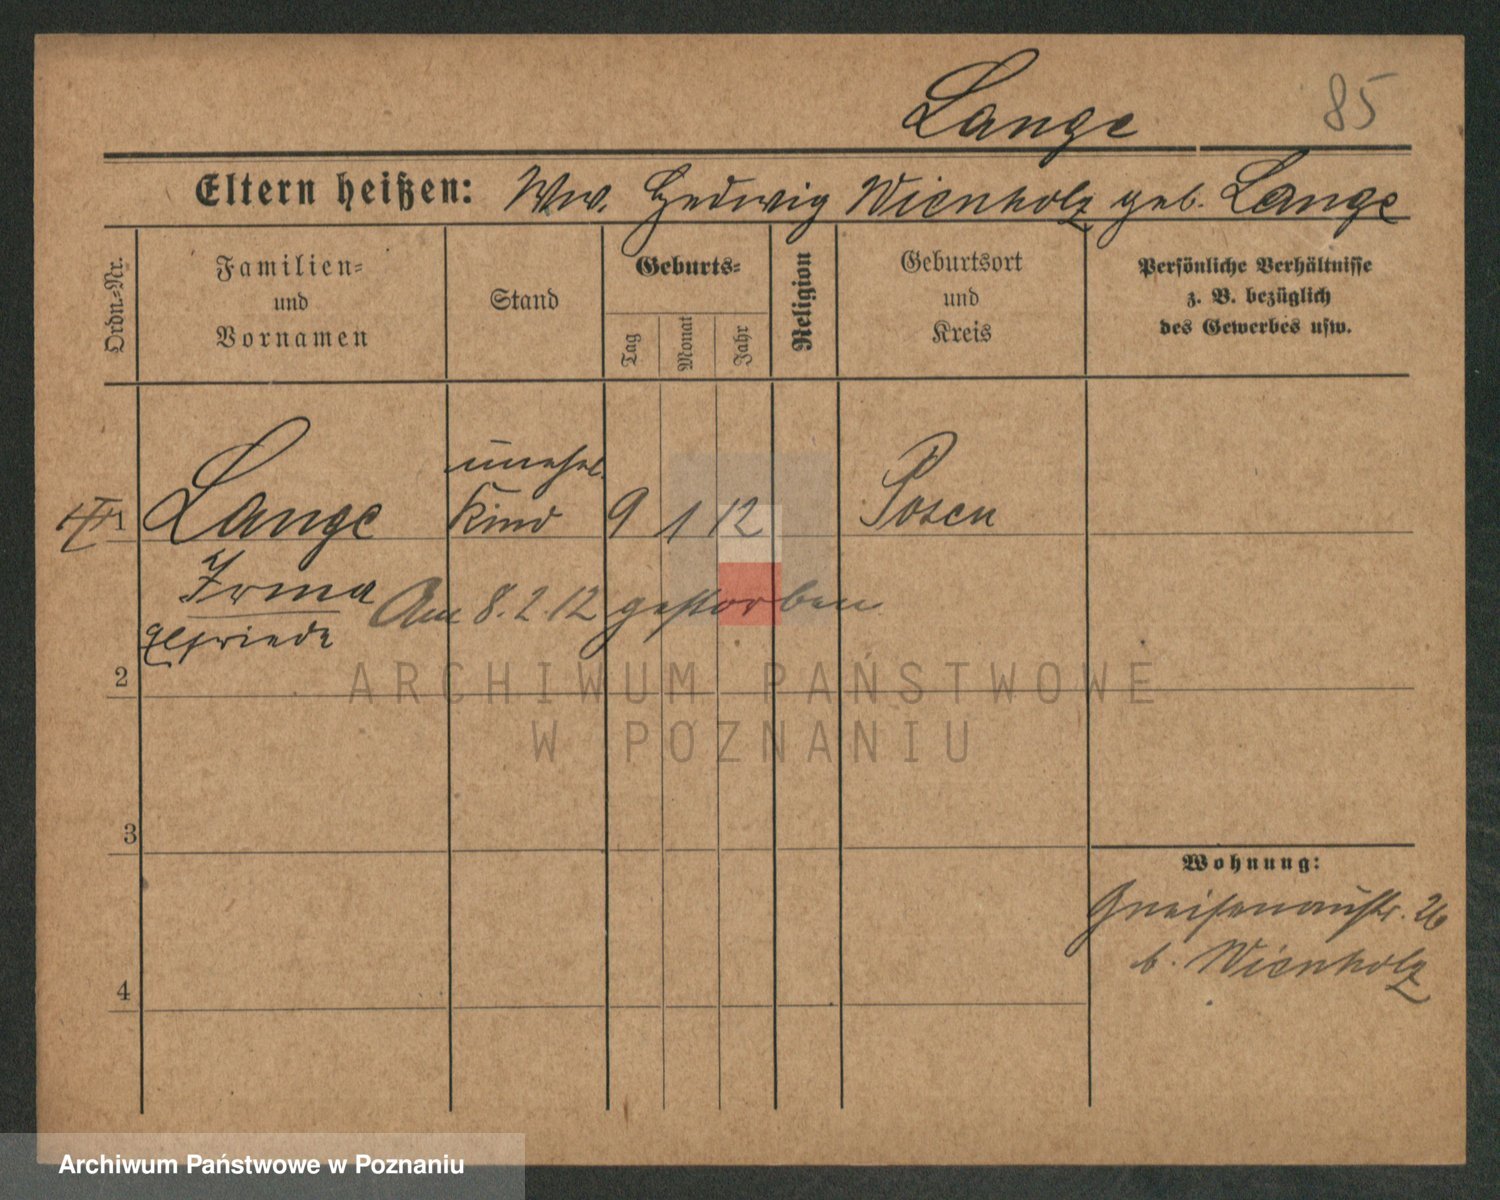 Lange 85
Eltern heißen: Ww. Hedwig Wienholz geb. Lange
Ordn=Nr.
Familien=
und
Vornamen
Stand
Geburts=
Tag
Monat
Jahr
Religion
Geburtsort
und
Kreis
Persönliche Verhältnisse
z. B. bezüglich
des Gewerbes usw.
unehel.
1 Lange Kind 9 1 12 Posen
Irma Am 8. 2. 12 gestorben
Elfriede
2
ARCHIWUM PAŃSTWOWE
W POZNANIU
3
Wohnung:
Gneisenaustr. 26
b. Wienholz
4
Archiwum Państwowe w Poznaniu